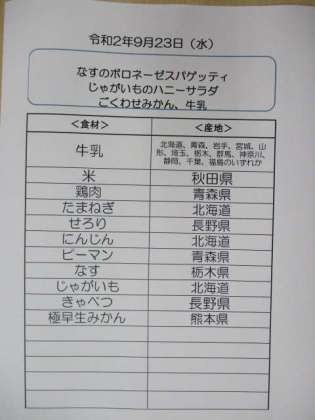 令和2年9月23日（水）
なすのボロネーゼスパゲッティ
じゃがいものハニーサラダ
ごくわせみかん、牛乳
＜食材＞ ＜産地＞
牛乳 北海道、青森、岩手、宮城、山
形、埼玉、栃木、群馬、神奈川、
静岡、千葉、福島のいずれか
米 秋田県
鶏肉 青森県
たまねぎ 北海道
せろり 長野県
にんじん 北海道
ピーマン 青森県
なす 栃木県
じゃがいも 北海道
きゃべつ 長野県
極早生みかん 熊本県